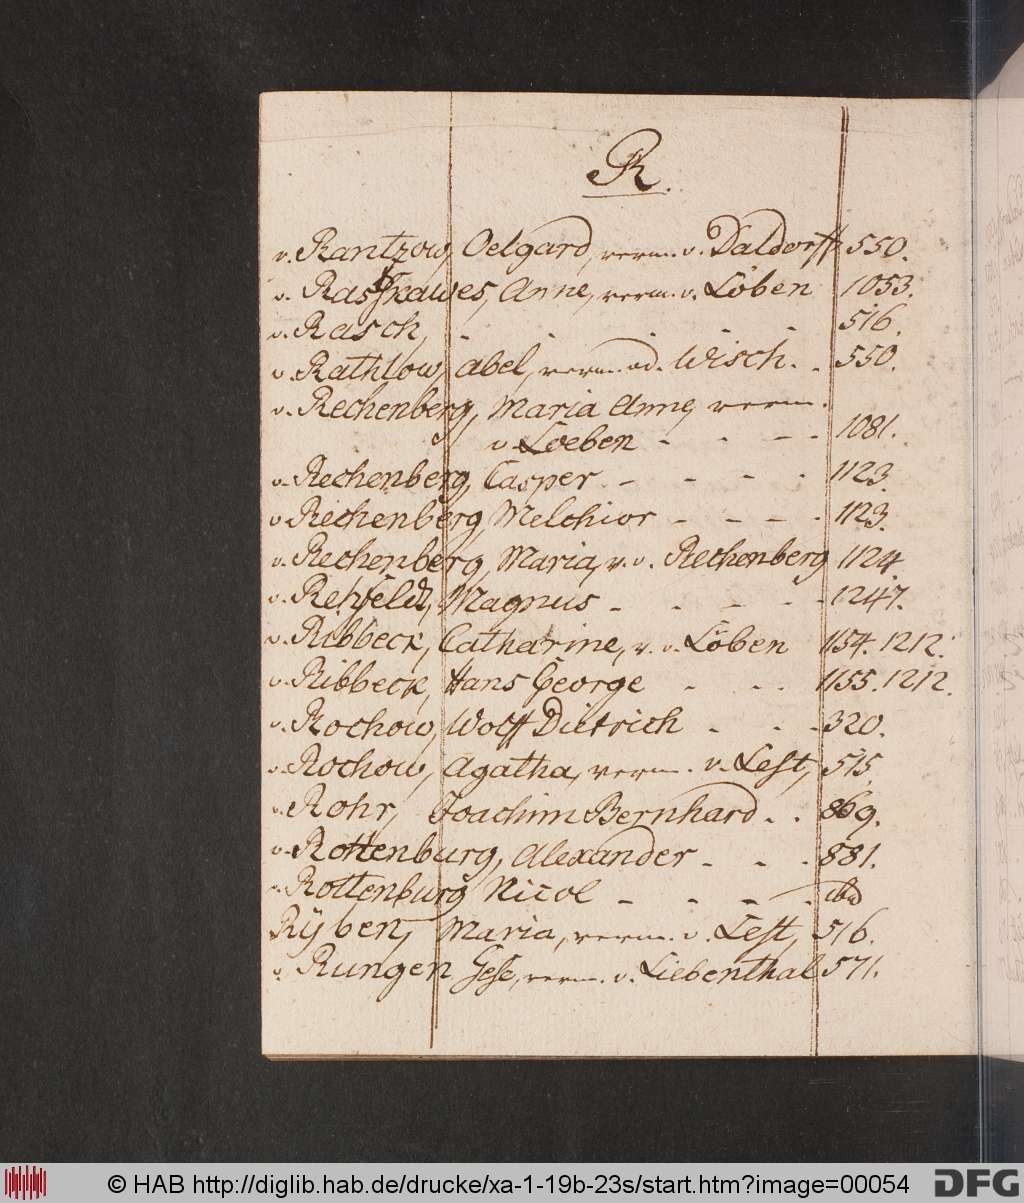 R.
v. Rantzow, Oelgard, verm. v. Daldorff 550.
v. Raskawes, Anne, verm. v. Löben 1053.
v. Rasch, - - - - 516.
v. Rathlow, Abel, verm. v. Wisch. - 550.
v. Rechenberg, Maria Anne, verm.
v. Loeben - - - - 1081.
v. Rechenberg, Casper - - - - 1123.
v. Rechenberg, Melchior - - - - 1123.
v. Rechenberg, Maria, v. v. Rechenberg 1124
v. Rehfeldt, Magnus - - - - 1247.
v. Ribbeck, Catharine, v. v. Löben 1154. 1212.
v. Ribbeck, Hans George - - - 1155. 1212.
v. Rochow, Wolff Dietrich - - - 320.
v. Rochow, Agatha, verm. v. Lest, 515.
v. Rohr, Joachim Bernhard - - 869.
v. Rottenburg, Alexander - - - 881.
v. Rottenburg Nicol - - - - ibid
Rÿben, Maria, verm. v. Lest, 516.
v. Rungen Gese, verm. v. Liebenthal 571.
© HAB http://diglib.hab.de/drucke/xa-1-19b-23s/start.htm?image=00054
DFG